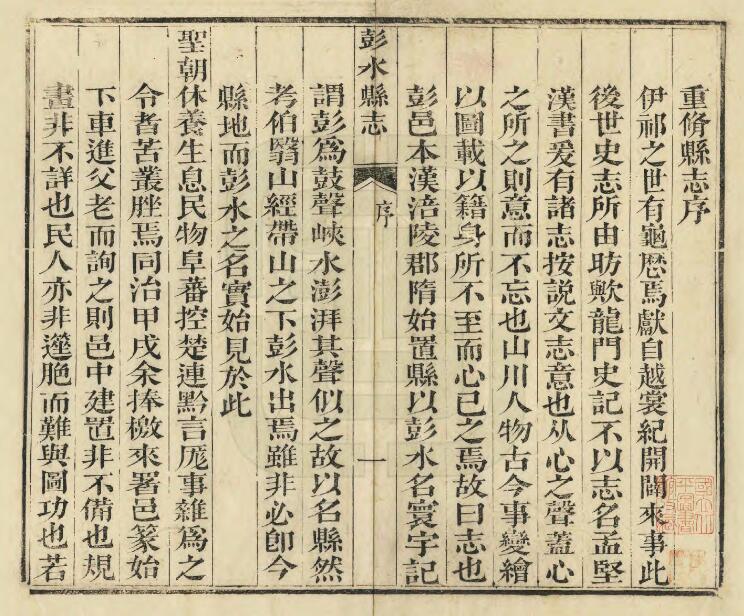 重脩縣志序
伊祁之世有龜厯焉獻自越裳紀開闢來事此
後世史志所由昉歟龍門史記不以志名孟堅
漢書爰有諸志按說文志意也从心之聲蓋心
之所之則意而不忘也山川人物古今事變繪
以圖載以籍身所不至而心已之焉故曰志也
彭邑本漢涪陵郡隋始置縣以彭水名寰宇記
彭水縣志 序 一
謂彭爲鼓聲峽水澎湃其聲似之故以名縣然
考伯翳山經帶山之下彭水出焉雖非必卽今
縣地而彭水之名實始見於此
聖朝休養生息民物阜蕃控楚連黔言厖事雜爲之
令者苦叢脞焉同治甲戌余捧檄來署邑篆始
下車進父老而詢之則邑中建置非不備也規
畫非不詳也民人亦非蓬脃而難與圖功也若